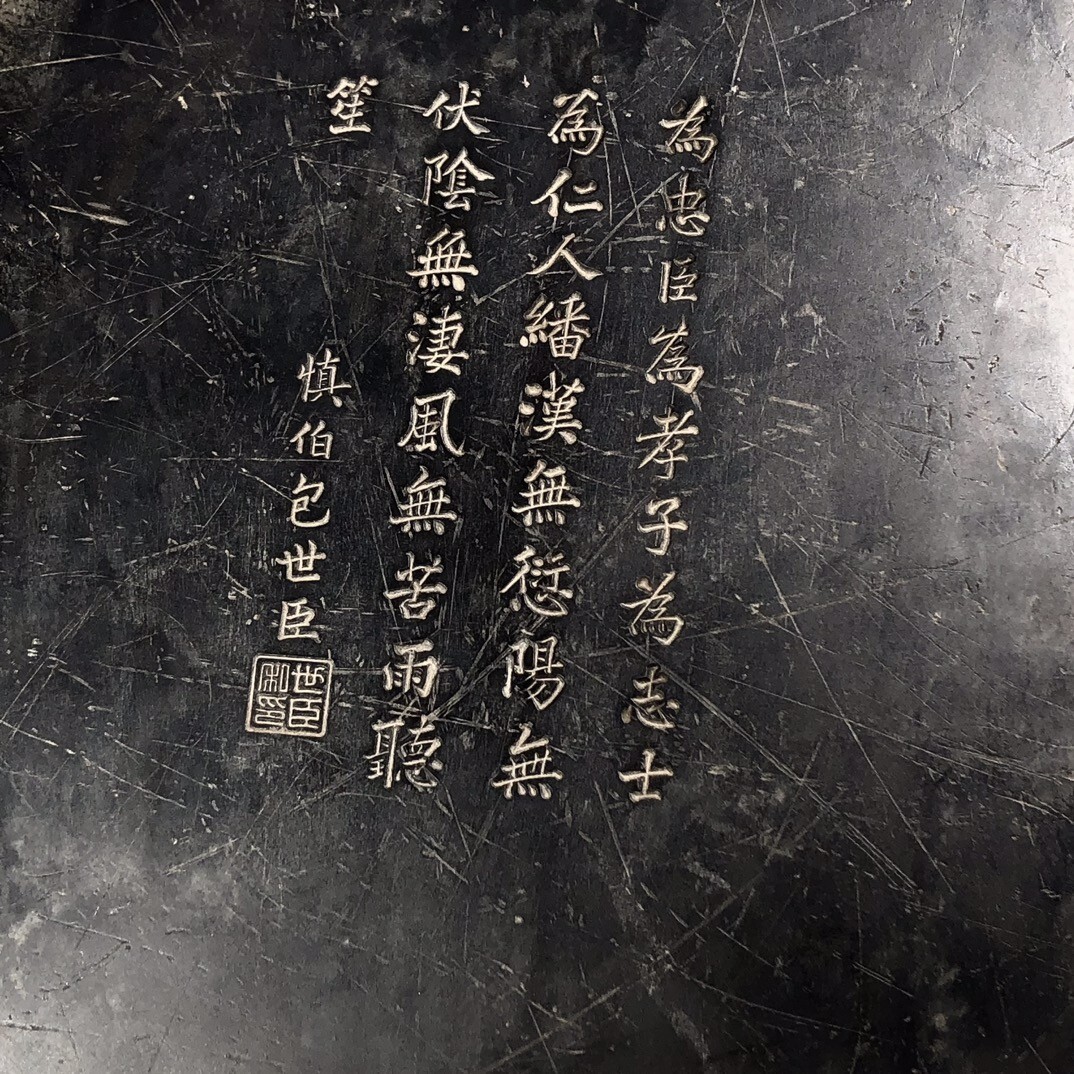 為忠臣為孝子為志士
為仁人繙漢無愆陽無
伏陰無淒風無苦雨聽
笙
慎伯包世臣
世臣私印